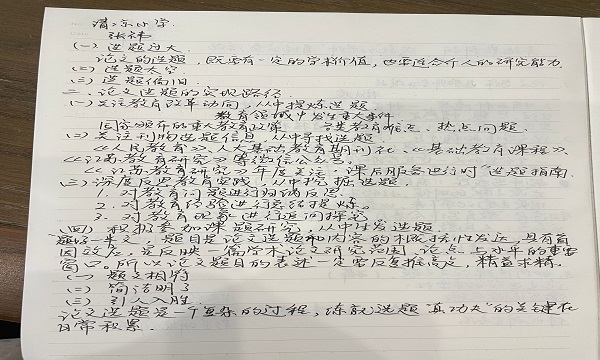 清江小学
张祎
(一)选题过大
论文的选题,既要有一定的学术价值,也要适合个人的研究能力
(二)选题太空
(三)选题偏旧
二、论文选题的实现路径
(一)关注教育改革动向,从中提炼选题
教育领域中发生重大事件
国家颁布的重大教育政策 学生教育难点、热点问题
(二)关注刊物选题信息,从中寻找选题
《人民教育》、人大基础教育期刊社、《基础教育课程》、
《江苏教育研究》等微信公众号。
《江苏教育研究》年度关注·课后服务进行时"选题指南
(三)深度反思教育实践,从中挖掘选题
1. 对教育问题进行归纳反思
2. 对教育经验进行总结提炼。
3. 对教育现象进行追问探究
(四)积极参加课题研究,从中生发选题
题好一半文,题目是论文选题和内容的概括性表达,具有首
因效应,是反映一篇学术论文研究范围、论点与水平的重要
窗口。所以论文题目的表述一定要反复推敲,精益求精.
(一)题文相符
(二)简洁明了
(三)引人入胜
论文选题是一个复杂的过程,练就选题"真功夫"的关键在
日常积累.